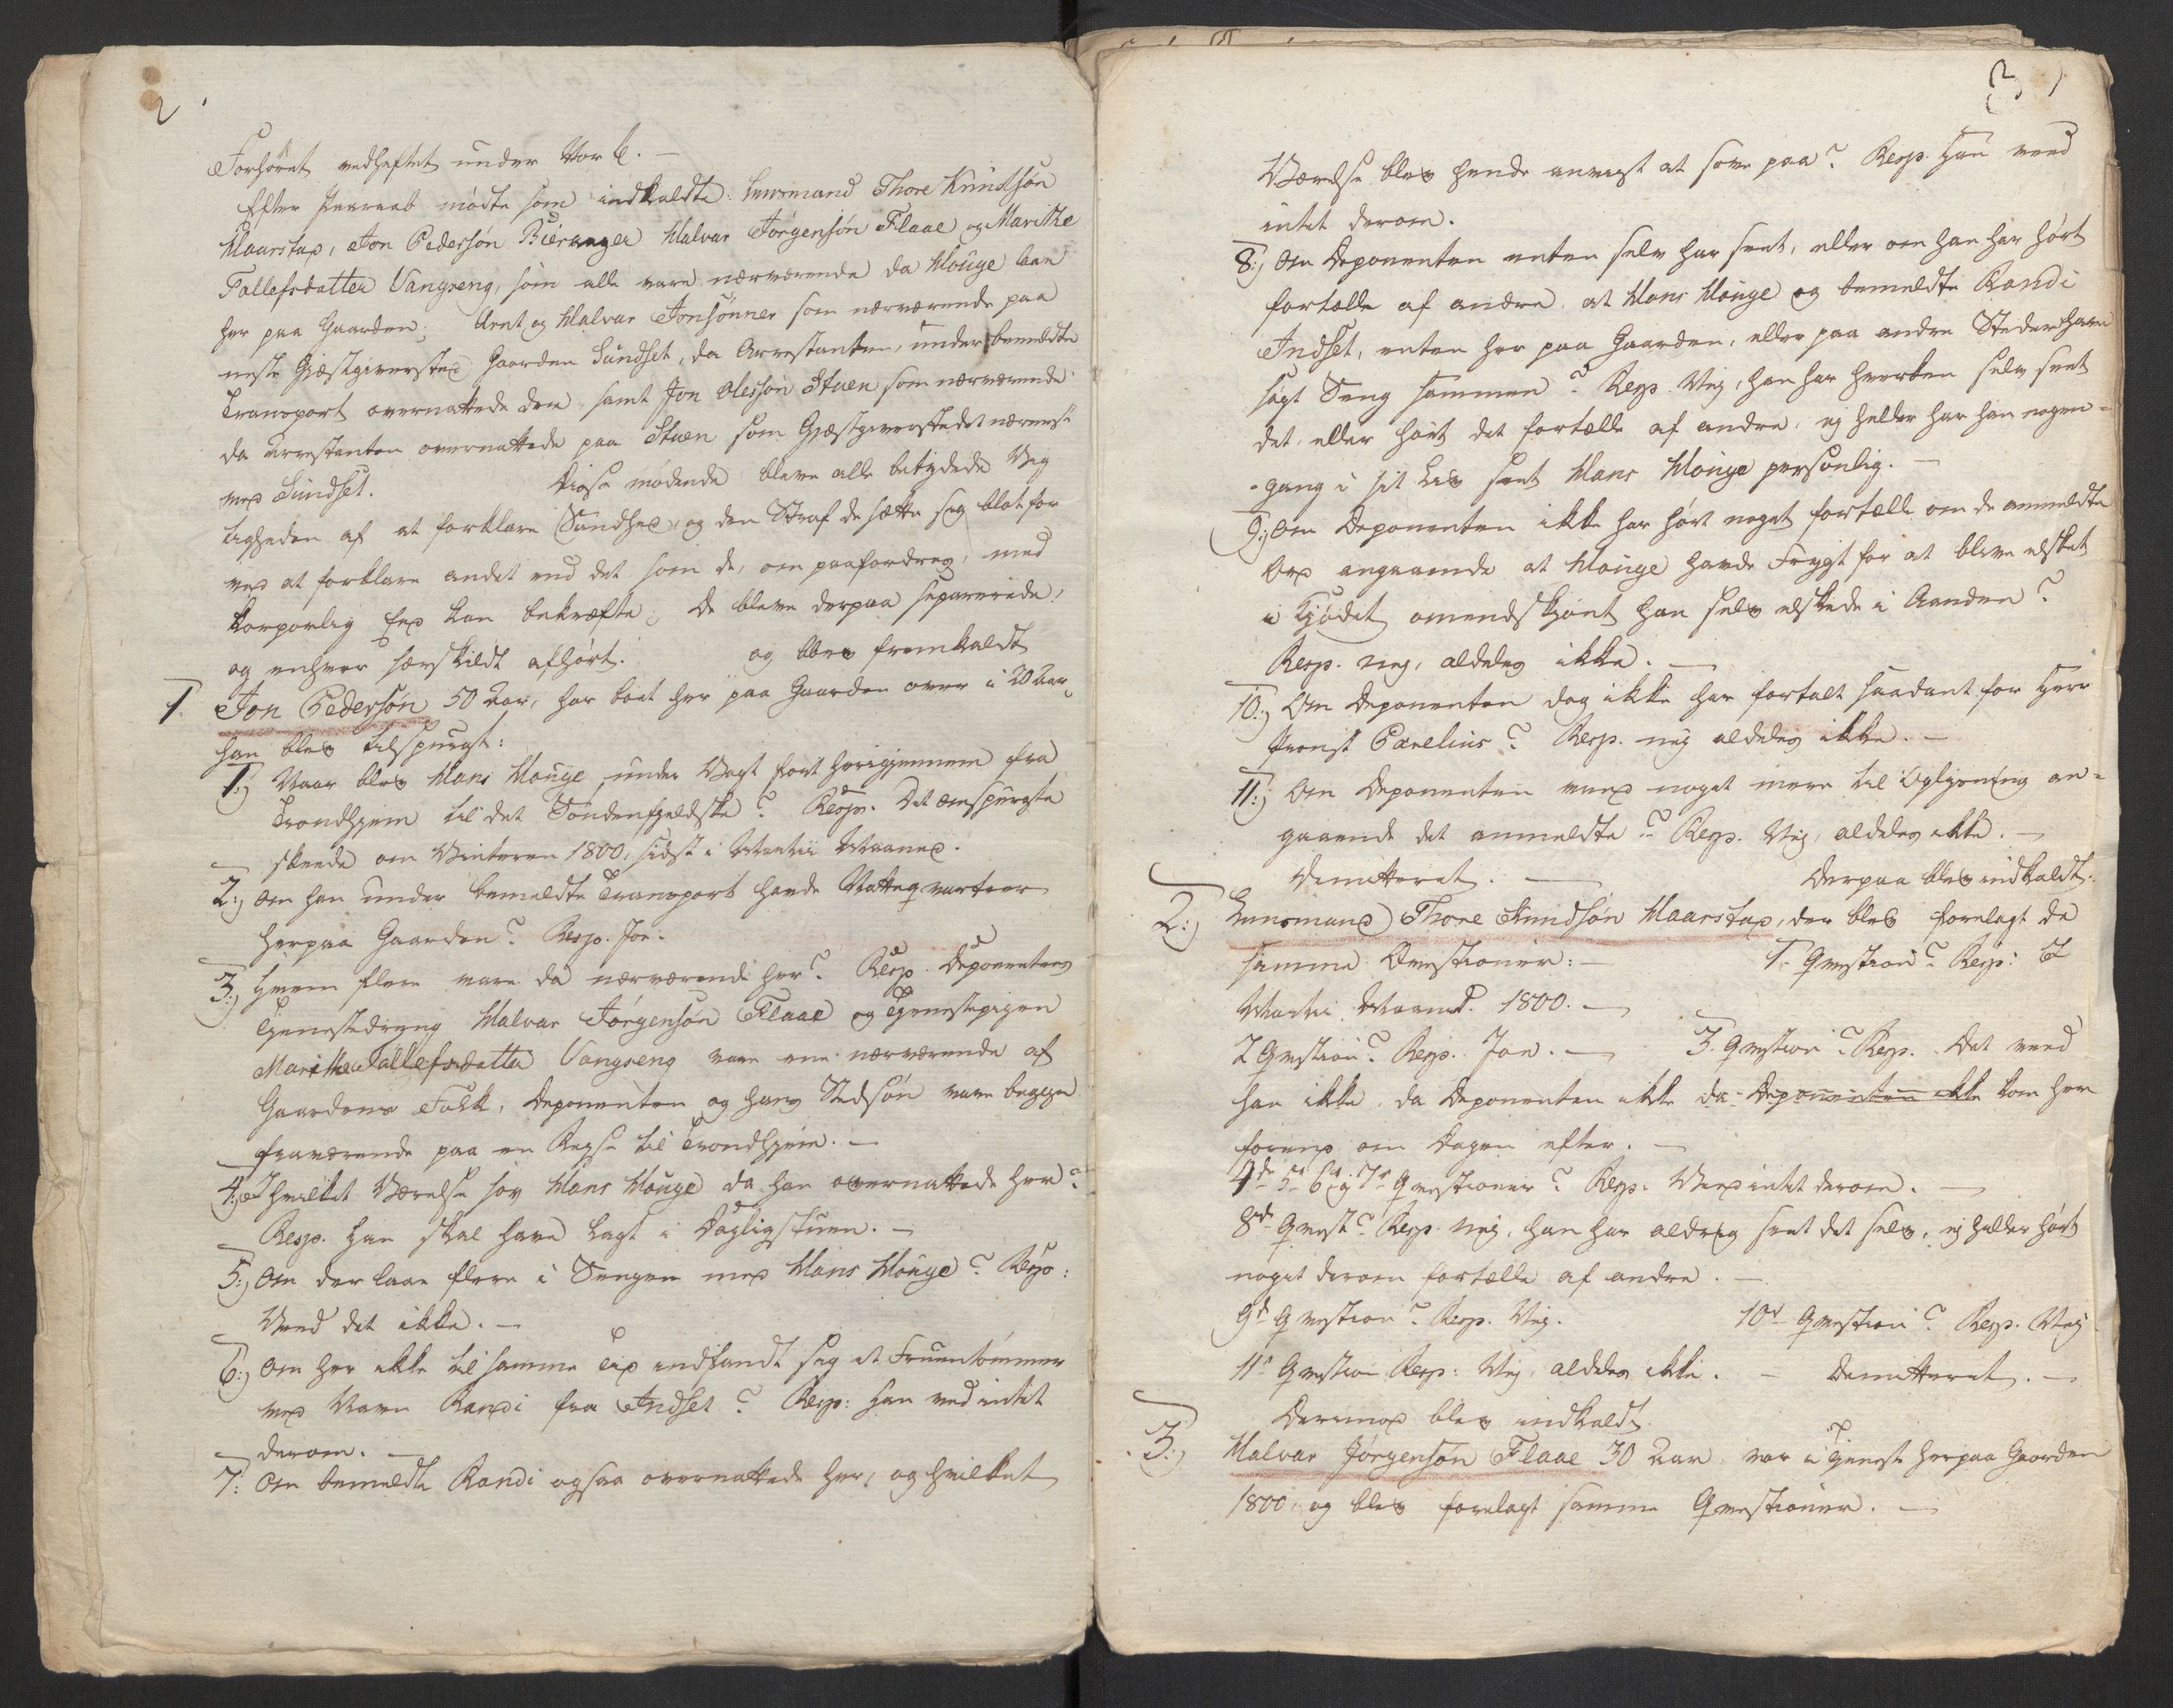 2
Forhøret vedheftet under Nor 6. —
Efter Paaraab mødte som indkaldte: Lensmand Thore Knudsøn
Haarstad, Jon Pedersøn Bieranger Halvar Jørgensøn Flaae og Marithe
Tollefsdatter Vangseng, som alle vare nærværende da Houge laae
her paa Gaarden; Arnt og Halvar Jonsønner som nærværende paa
neste Gjæstgiversted Gaarden Sundset, da Arrestanten, under bemeldte
Transport overnattede der samt Jon Olessøn Stuen som nærværende
da Arrestanten overnattede paa Stuen som Gjæstgiverstedet nærmest
ved Sundset. Disse mødende bleve alle betydede Vig
tigheden af at forklare Sandhed, og den Straf de satte sig blot for
ved at forklare andet end det som de, om paafordres, med
korporlig Eed kan bekræfte; De bleve derpaa separerede,
og enhver særskildt afhørt. og blev fremkaldt
1. Jon Pedersøn 50 Aar, har boet her paa Gaarden over i 20 Aar,
han blev tilspurgt:
1:) Naar blev Hans Houge under Vagt ført herigjennem fra
Trondhjem til det Søndenfjeldske? Resp. Det omspurgte
skeede om Vinteren 1800, sidst i Martii Maaned.
2:) Om han under bemeldte Transport havde Natteqvarteer
herpaa Gaarden? Resp. Joe.
3:) Hvem flere vare da nærværende her? Resp. Deponentens
Tjenestedreng Halvar Jørgensøn Flaae og Tjenestepigen
Marithe Tollefsdatter Vangseng vare ene nærværende af
Gaardens Folk, Deponenten og hans Stedsøn vare begge
fraværende paa en Reyse til Trondhjem. —
4:) I hvilket Værelse sov Hans Houge da han overnattede her?
Resp. han skal have lagt i Dagligstuen. —
5:) Om der laae flere i Sengen med Hans Houge? Resp:
Veed det ikke. —
6:) Om her ikke til samme Tid indfandt sig et Fruentømmer
ved Navn Randi fra Indset? Resp: han ved intet
derom. —
7: Om bemeldte Randi ogsaa overnattede her, og hvilket
3
Værelse blev hende anvist at sove paa? Resp. Han veed
intet derom.
8:) Om Deponenten enten selv har seet, eller om han har hørt
fortælle af andre, at Hans Houge og bemeldte Randi
Indset, enten her paa Gaarden, eller paa andre Steder have
søgt Seng sammen? Resp. Nej, han har hverken selv seet
det, eller hørt det fortælle af andre, ej heller har han nogen-
-gang i sit Liv seet Hans Houge personlig. —
9:) Om Deponenten ikke har hørt noget fortælle om de anmeldte
Ord angaaende at Houge havde Frygt for at blive elsket
i Kjødet omendskjønt han selv elskede i Aanden?
Resp. nej, aldeles ikke. —
10:) Om Deponenten dog ikke har fortalt saadant for Herr
Provst Parelius? Resp. nej aldeles ikke. —
11:) Om Deponenten veed noget mere til Oplysning an-
gaaende det anmeldte? Resp. Nej, aldeles ikke. —
Demitteret. — Derpaa blev indkaldt.
2:) Lensmand Thore Knudsøn Haarstad, der blev forelagt de
samme Qvestioner: — 1. Qvestion? Resp: I
Martii Maaned 1800. —
2 Qvestion? Resp. Joe. — 3. Qvestion? Resp. Det veed
han ikke, da Deponenten ikke da Deponenten ikke kom her
førend om Dagen efter. —
4de 5te 6te og 7de Qvestioner? Resp. Veed intet derom. —
8de Qvest? Resp. nej, han har aldrig seet det selv, ej heller hørt
noget derom fortælle af andre. —
9de Qvestion? Resp. Nej. 10de Qvestion? Resp. Nej
11te Qvestion Resp: Nej, aldeles ikke. — Demitteret. —
Dernæst blev indkaldt
3:) Halvar Jørgensøn Flaae 30 Aar, var i Tjenest herpaa Gaarden
1800, og blev forelagt samme Qvestioner. —